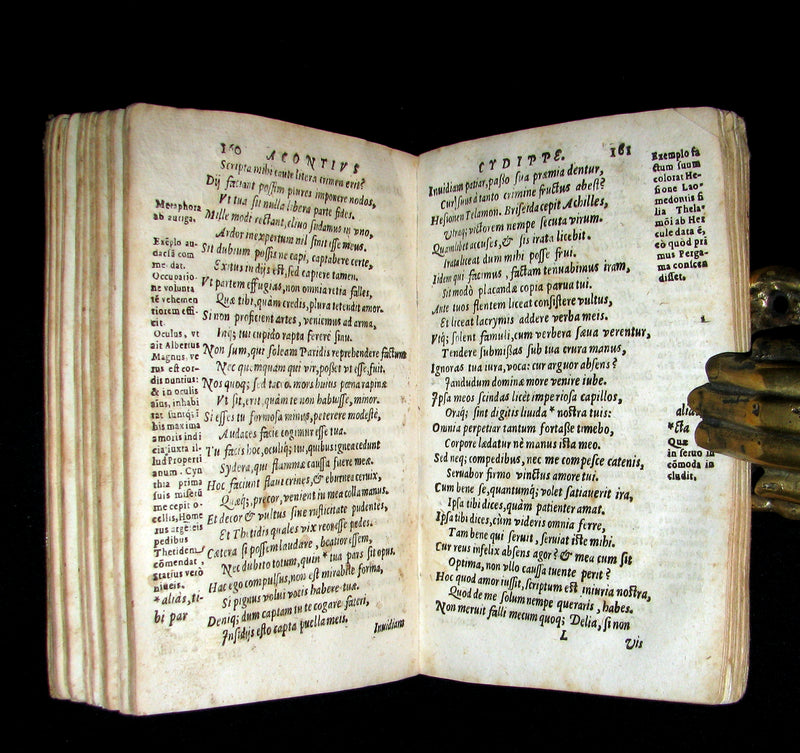 160 ACONTIVS
Scripta mihi caute litera crimen erit?
Dij faciant possim plures imponere nodos,
Vt tua sit nulla libera parte fides.
Mille modi restant, cliuo sudamus in vno,
Ardor inexpertum nil sinit esse meus.
Sit dubium possis ne capi, captabere certe,
Exitus in dijs est, sed capiere tamen.
Vt partem effugias, non omnia retia falles,
Quæ tibi, quàm credis, plura tetendit amor.
Si non proficient artes, veniemus ad arma,
Inq; tui cupido rapta ferere sinu.
Non sum, qui soleam Paridis reprehendere factum
Nec quemquam qui vir, posset vt esse, fuit.
Nos quoq; sed taceo. mors huius pœna rapinæ
Vt sit, erit, quàm te non habuisse, minor.
Si esses tu formosa minus, peterere modestè,
Audaces facie cogimur esse tua.
Tu facis hoc, oculiq; tui, quibus ignea cedunt
Sydera, qui flammæ caussa fuere meæ.
Hoc faciunt flaui crines, & eburnea ceruix,
Quæq; precor, veniant in mea colla manus.
Et decor & vultus sine rusticitate pudentes,
Et Thetidis quales vix reor esse pedes.
Cætera si possem laudare, beatior essem,
Nec dubito totum, quin * tua pars sit opus.
Hac ego compulsus, non est mirabile forma,
Si pignus volui vocis habere tuæ.
Deniq; dum captam tu te cogare fateri,
Insidijs esto capta puella meis.
Inuidiam
Metaphora
ab auriga.
Exẽplo au-
daciã com
me dat.
Occupatio-
ne volunta
tẽ vehemen
tiorem effi-
cit.
Oculus, vt
ait Albertus
Magnus, ve
rus est cor-
dis nuntius:
& in oculis
aĩus, inhabi
tat suntq; i
bis maxima
amoris indi
cia, iuxta il-
lud Properti
anum. Cyn
thia prima
suis miserũ
me cepit o-
cellis, Home
rus argẽteis
pedibus
Thetidem
cõmendat,
statius verò
niueis.
*aliàs, ti-
bi par
CYDIPPE. 161
Inuidiam patiar, passo sua præmia dentur,
Cur suus à tanto crimine fructus abest?
Hesionen Telamon. Briseida cepit Achilles,
Vtraq; victorem nempe secuta virum.
Quamlibet accuses, & sis irata licebit.
Irata liceat dum mihi posse frui.
Idem qui facimus, factam tenuabimus iram,
Sit modò placandæ copia parua tui.
Ante tuos flentem liceat consistere vultus,
Et liceat lacrymis addere verba meis.
Vtq; solent famuli, cum verbera sæua verentur,
Tendere submissas sub tua crura manus,
Ignoras tua iura, voca: cur arguor absens?
Iandudum dominæ more venire iube.
Ipsa meos scindas licèt imperiosa capillos,
Oraq; sint digitis liuida * nostra tuis:
Omnia perpetiar tantum fortasse timebo,
Corpore lædatur nè manus ista meo.
Sed neq; compedibus, nec me compesce catenis,
Seruabor firmo vinctus amore tui.
Cum bene se, quantumq; volet satiauerit ira,
Ipsa tibi dices, quàm patienter amat.
Ipsa tibi dices, cùm videris omnia ferre,
Tam bene qui seruit, seruiat iste mihi.
Cur reus infelix absens agor? & mea cum sit
Optima, non vllo caussa tuente perit?
Hoc quod amor iussit, scriptum est iniuria nostra,
Quod de me solum nempe queraris, habes.
Non meruit falli mecum quoq; Delia, si non
L
Vis
Exemplo fa
ctum suum
colorat He-
sione Lao-
medontis fi
lia Thela
mõi ab Her
cule data è,
eò quòd pri
mus Perga-
ma conscen
disset.
alia
*Ista
Quæ
in seruo in
cõmoda in
cludit.